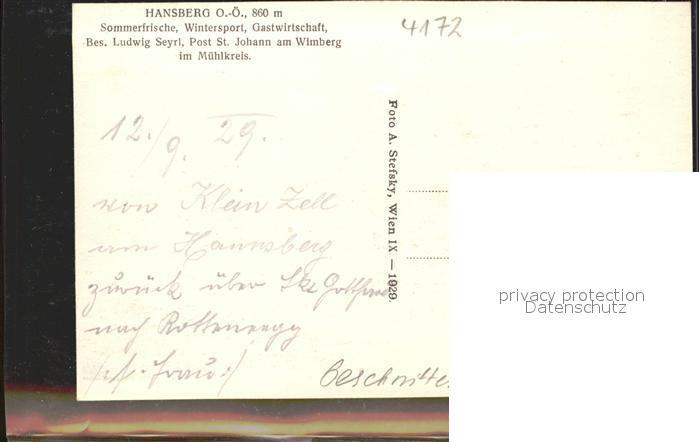 HANSBERG O.-Ö., 860 m
Sommerfrische, Wintersport, Gastwirtschaft,
Bes. Ludwig Seyrl, Post St. Johann am Wimberg
im Mühlkreis.
4172
12./9. 29.
von Klein Zell
am Hannsberg
zurück über
nach Rottenegg
Frau :/
Foto A. Stefsky, Wien IX — 1929.
privacy protection
Datenschutz